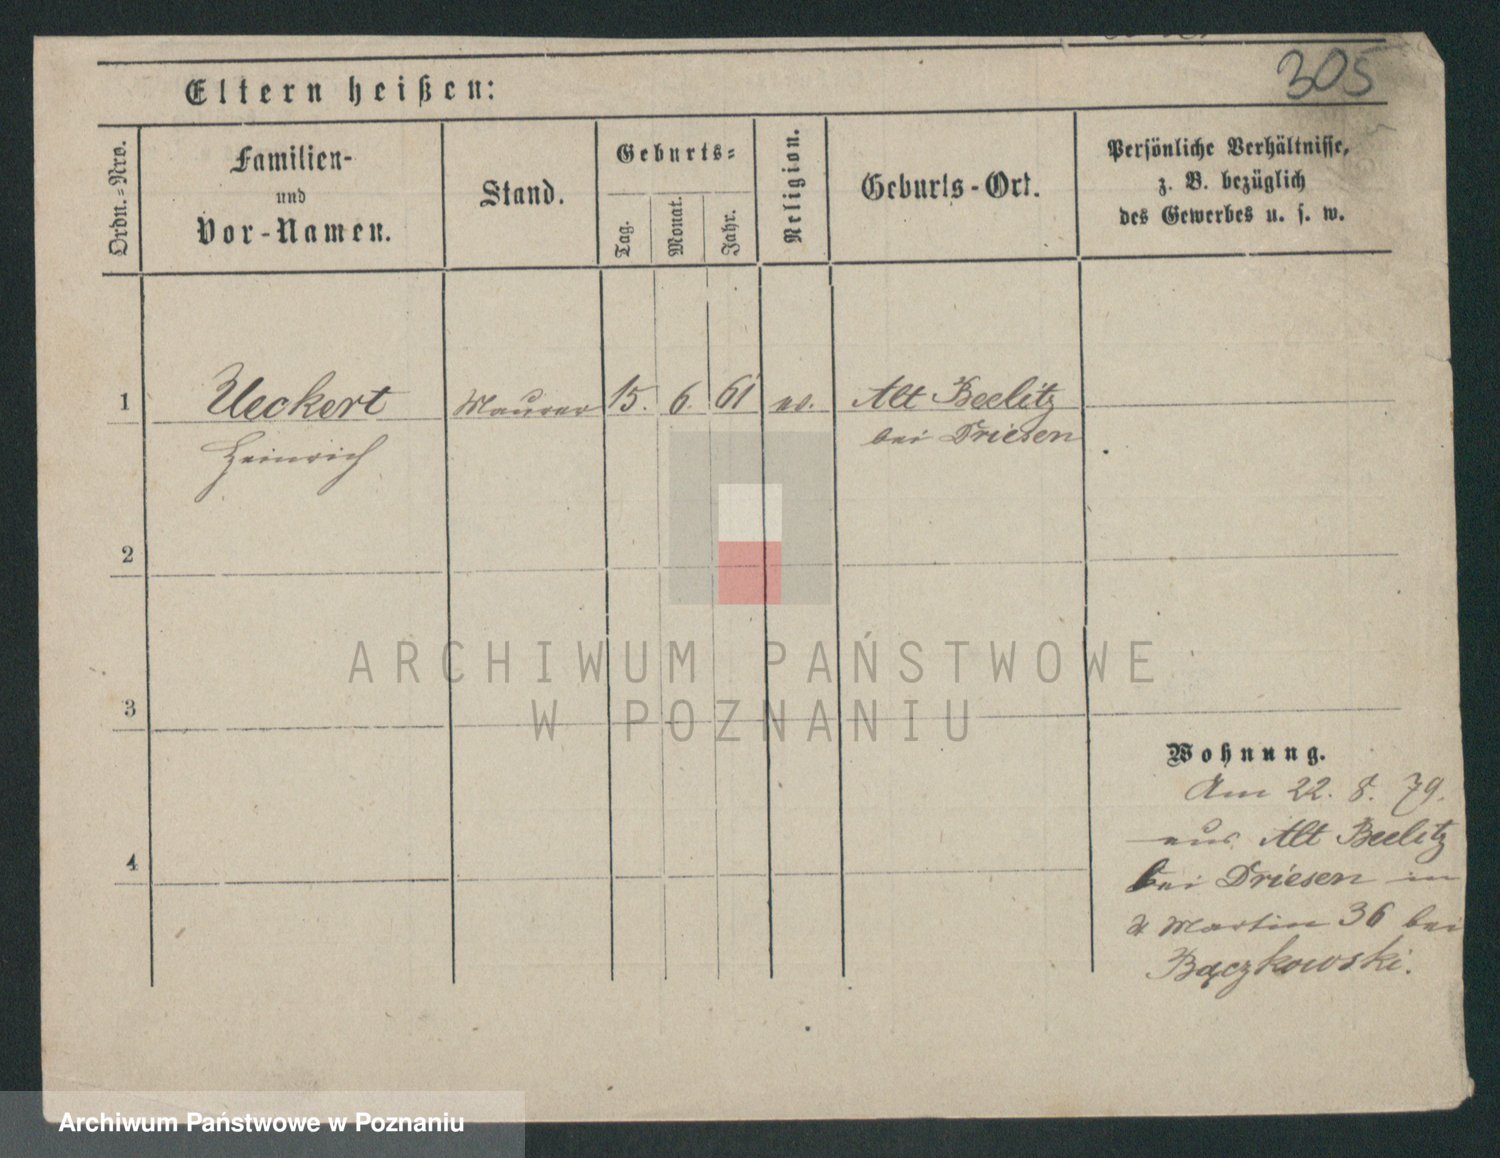 305
Eltern heißen:
Ordn.-Nro.
Familien-
und
Vor-Namen.
Stand.
Geburts-
Tag.
Monat.
Jahr.
Religion.
Geburts-Ort.
Persönliche Verhältnisse,
z. B. bezüglich
des Gewerbes u. s. w.
1 Ueckert Maurer 15. 6. 61 ev. Alt Beelitz
Heinrich bei Driesen
2
3
4
Wohnung.
Am 22. 8. 79.
aus Alt Beelitz
bei Driesen in
St Martin 36 bei
Bączkowski.
ARCHIWUM PAŃSTWOWE
W POZNANIU
Archiwum Państwowe w Poznaniu